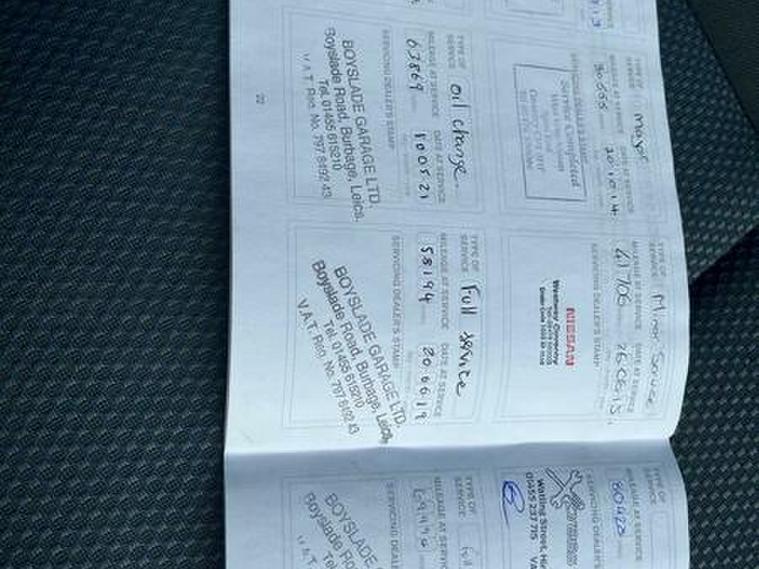 TYPE OF
SERVICE
Major
MILEAGE AT SERVICE
DATE AT SERVICE
20.10.14
SERVICING DEALER'S STAMP
Service Completed
TYPE OF
SERVICE
Minor Service
MILEAGE AT SERVICE
DATE AT SERVICE
41706
SERVICING DEALER'S STAMP
NISSAN
Westway Coventry
TYPE OF
SERVICE
oil change
MILEAGE AT SERVICE
DATE AT SERVICE
63869
100521
SERVICING DEALER'S STAMP
BOYSLADE GARAGE LTD.
Boyslade Road, Burbage, Leics.
Tel. 01455 615210
V.A.T. Reg. No. 797 8492 43
22
TYPE OF
SERVICE
Full service
MILEAGE AT SERVICE
DATE AT SERVICE
58194
200619
SERVICING DEALER'S STAMP
BOYSLADE GARAGE LTD.
Boyslade Road, Burbage, Leics.
Tel. 01455 615210
V.A.T. Reg. No. 797 8492 43
TYPE OF
SERVICE
MILEAGE AT SERVICE
80420
SERVICING DEALER'S
Watling Street, Hi
01455 237 715
VA
TYPE OF
SERVICE
Full
MILEAGE AT SERVICE
SERVICING DEAL
BOYSLADE
Boyslade Ro